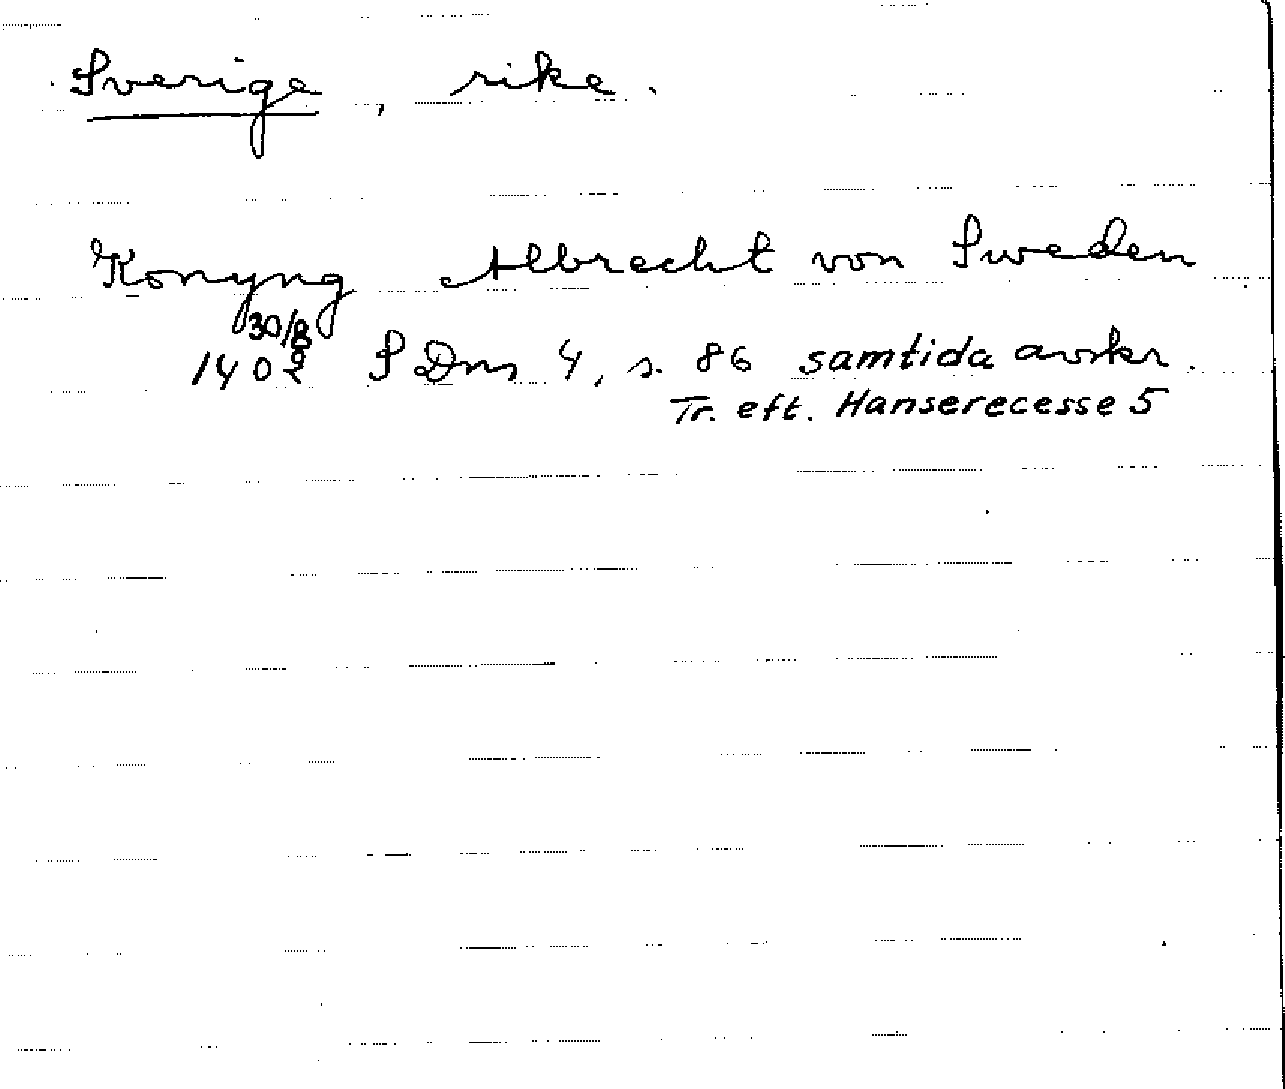 Sverige, rike.
Konyng Albrecht von Sweden
30/8
1402 SDns 4, s. 86 samtida avskr.
Tr. eft. Hanserecesse 5